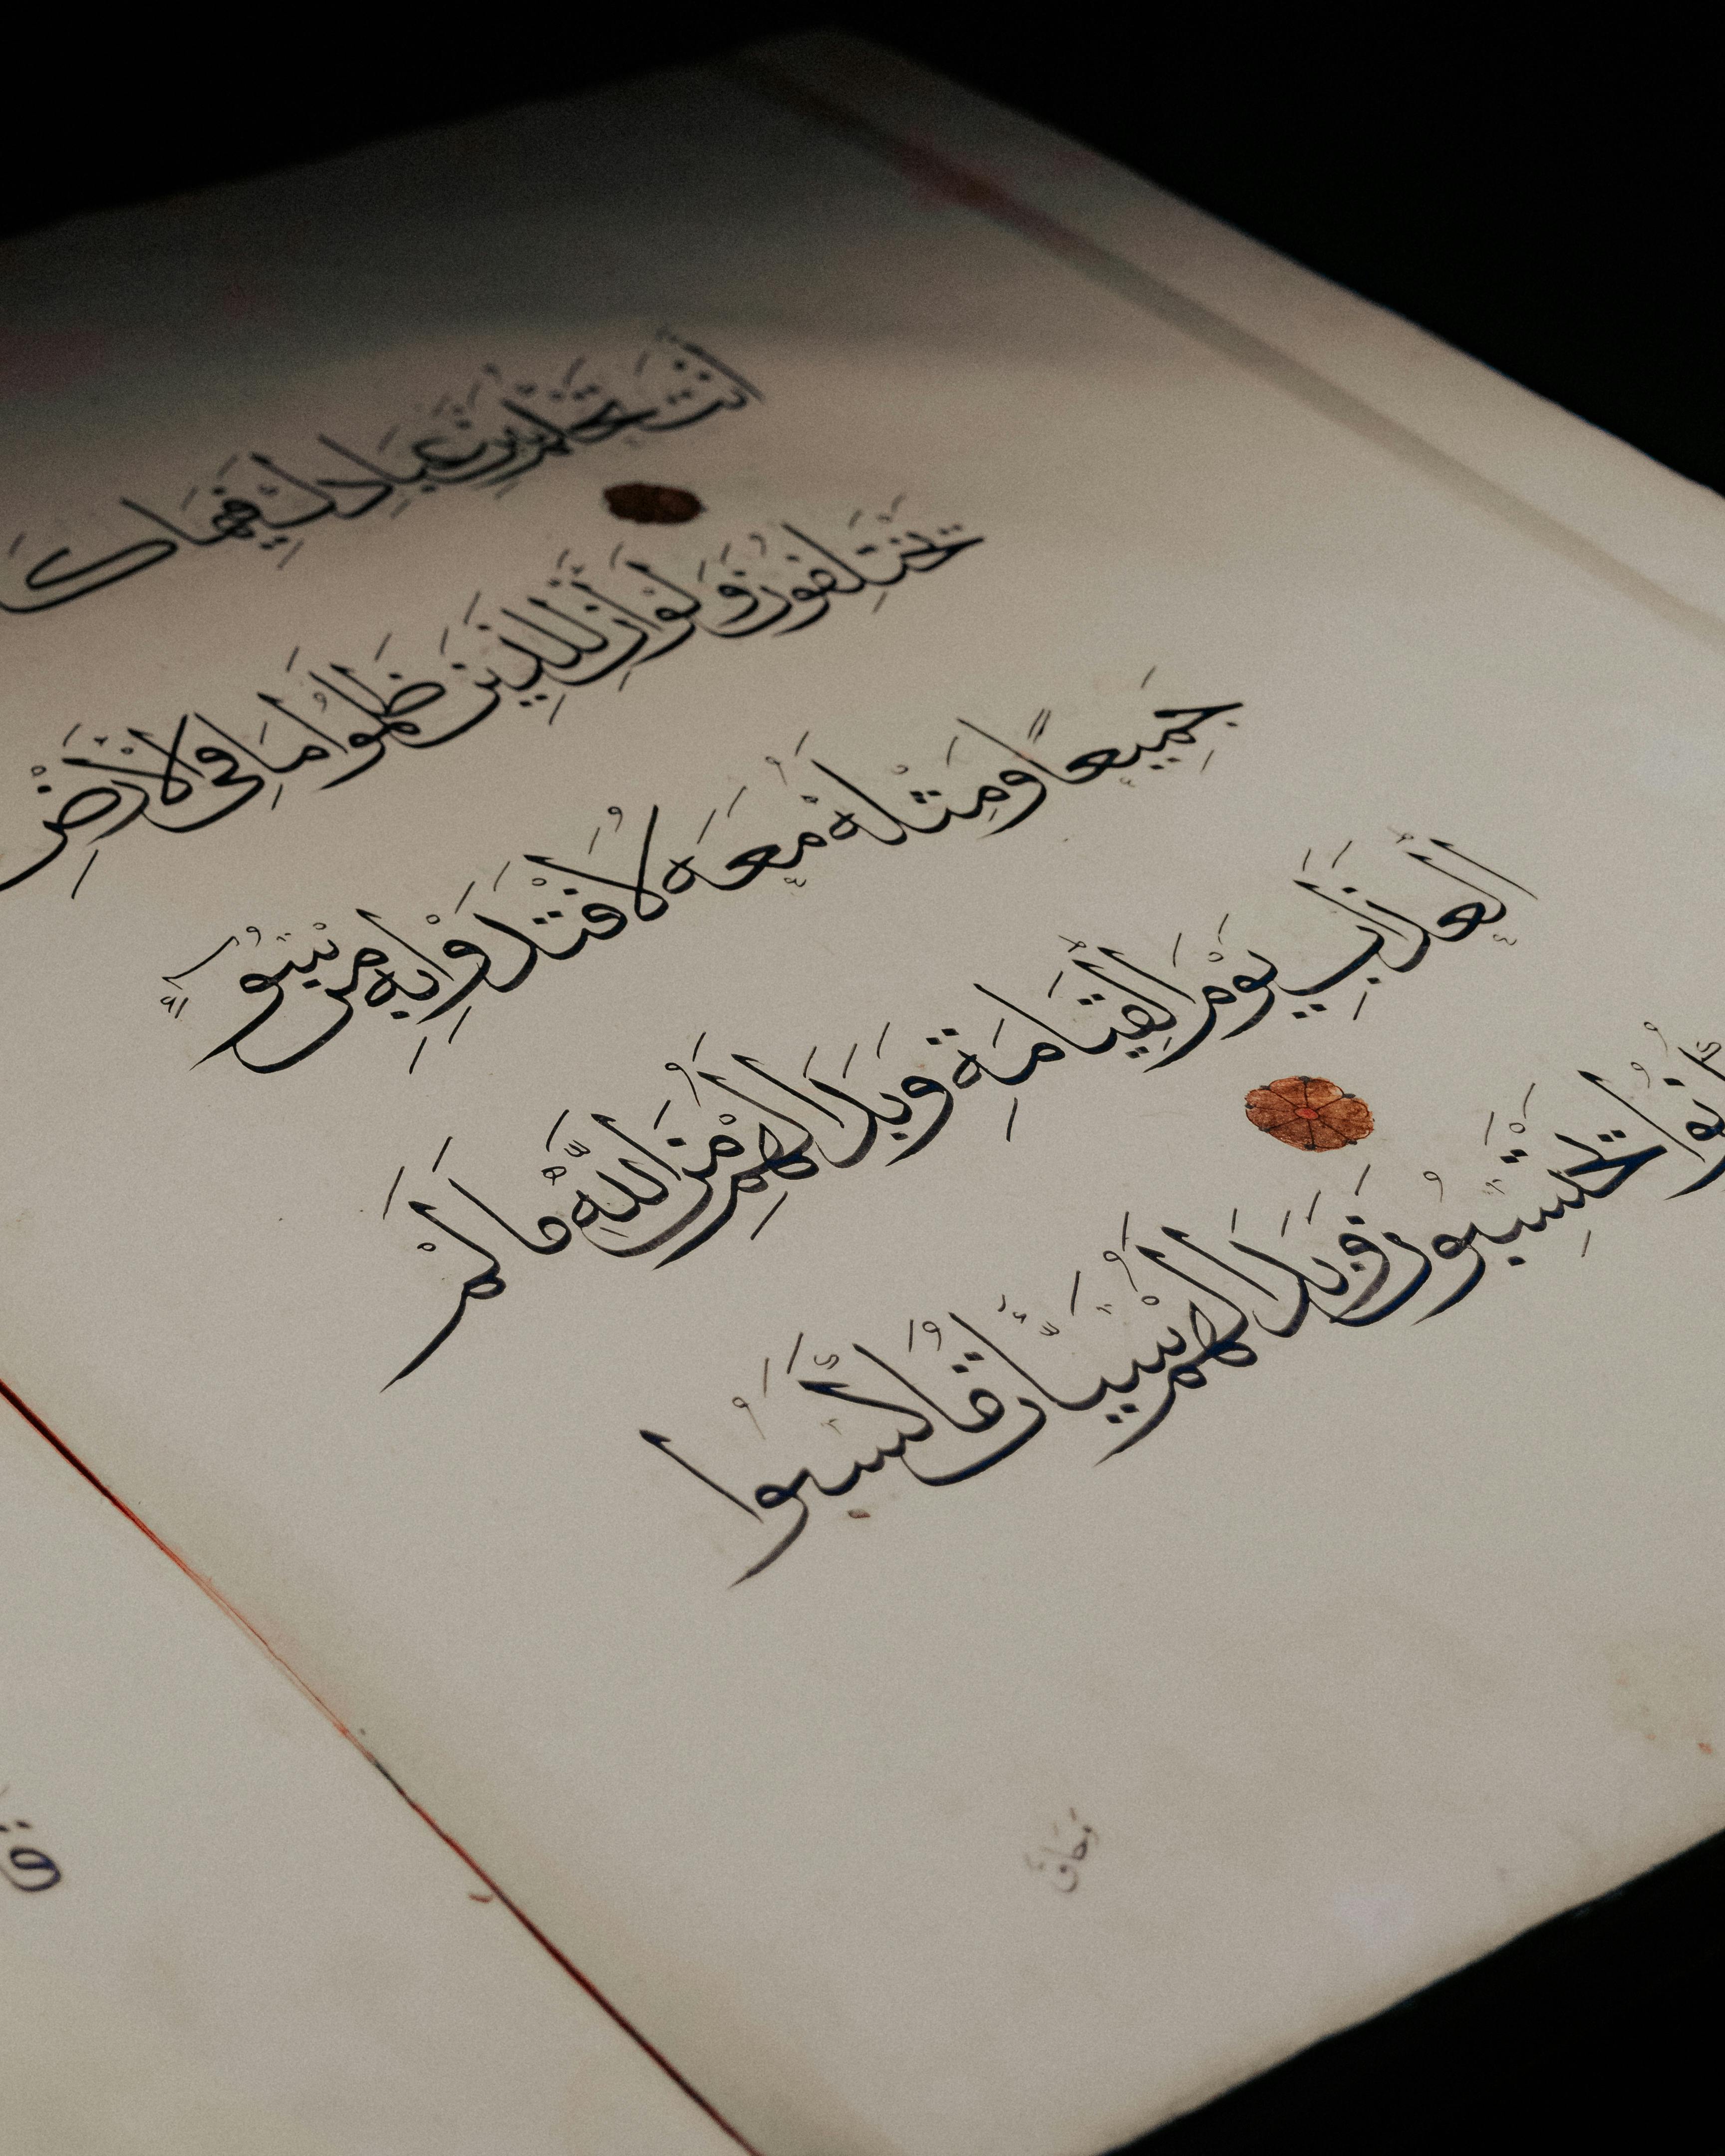 أَنْتَ تَحْكُمُ بَيْنَ عِبَادِكَ فِيمَا
يَخْتَلِفُونَ وَلَوْ أَنَّ لِلَّذِينَ ظَلَمُوا مَا فِي الْأَرْضِ
جَمِيعًا وَمِثْلَهُ مَعَهُ لَافْتَدَوْا بِهِ مِنْ سُوءِ
الْعَذَابِ يَوْمَ الْقِيَامَةِ وَبَدَا لَهُمْ مِنَ اللَّهِ مَا لَمْ
يَحْتَسِبُونَ وَبَدَا لَهُمْ سَيِّئَاتُ مَا كَسَبُوا
وَحَاقَ